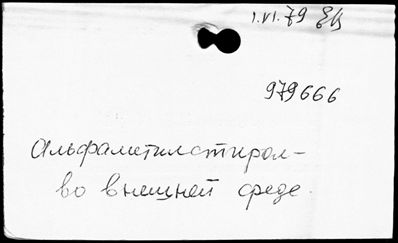 1.VI.79
979666
Альфаметилстирол-
во внешней среде.